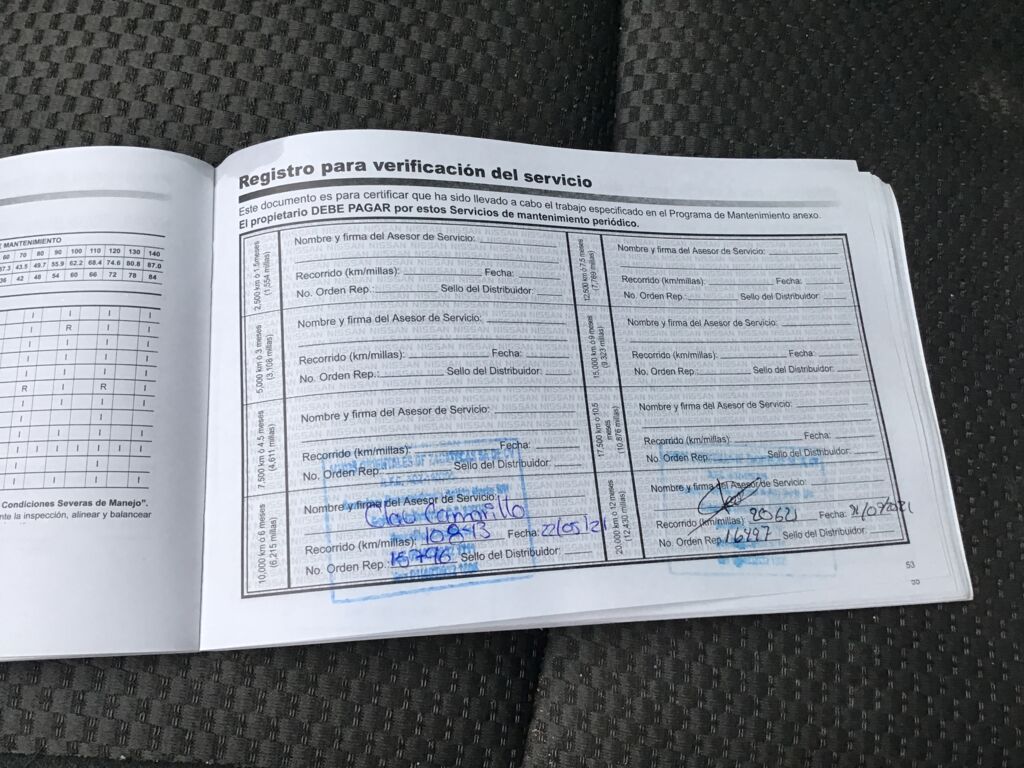 MANTENIMIENTO
60 70 80 90 100 110 120 130 140
37.3 43.5 49.7 55.9 62.2 68.4 74.6 80.8 87.0
36 42 48 54 60 66 72 78 84
I I I I
I R I I
I I I I
I I I I
I I I I
R I R I
I I I I
I I I I
I I I I
I I
I I I I
Condiciones Severas de Manejo".
nte la inspección, alinear y balancear
Registro para verificación del servicio
Este documento es para certificar que ha sido llevado a cabo el trabajo especificado en el Programa de Mantenimiento anexo.
El propietario DEBE PAGAR por estos Servicios de mantenimiento periódico.
2,500 km ó 1.5 meses
(1,554 millas)
Nombre y firma del Asesor de Servicio:
Recorrido (km/millas): Fecha:
No. Orden Rep.: Sello del Distribuidor:
5,000 km ó 3 meses
(3,108 millas)
Nombre y firma del Asesor de Servicio:
Recorrido (km/millas): Fecha:
No. Orden Rep.: Sello del Distribuidor:
7,500 km ó 4.5 meses
(4,611 millas)
Nombre y firma del Asesor de Servicio:
Recorrido (km/millas): Fecha:
No. Orden Rep. Sello del Distribuidor:
10,000 km ó 6 meses
(6,215 millas)
Nombre y firma del Asesor de Servicio:
Recorrido (km/millas): 10843 Fecha: 22/05/21
No. Orden Rep.: 15796 Sello del Distribuidor:
12,500 km ó 7.5 meses
(7,769 millas)
Nombre y firma del Asesor de Servicio:
Recorrido (km/millas): Fecha:
No. Orden Rep.: Sello del Distribuidor:
15,000 km ó 9 meses
(9,323 millas)
Nombre y firma del Asesor de Servicio:
Recorrido (km/millas): Fecha:
No. Orden Rep.: Sello del Distribuidor:
17,500 km ó 10.5
meses
(10,876 millas)
Nombre y firma del Asesor de Servicio:
Recorrido (km/millas): Fecha:
No. Orden Rep. Sello del Distribuidor:
20,000 km ó 12 meses
(12,430 millas)
Nombre y firma del Asesor de Servicio:
Recorrido (km/millas): 20621 Fecha:
No. Orden Rep. 16497 Sello del Distribuidor:
53